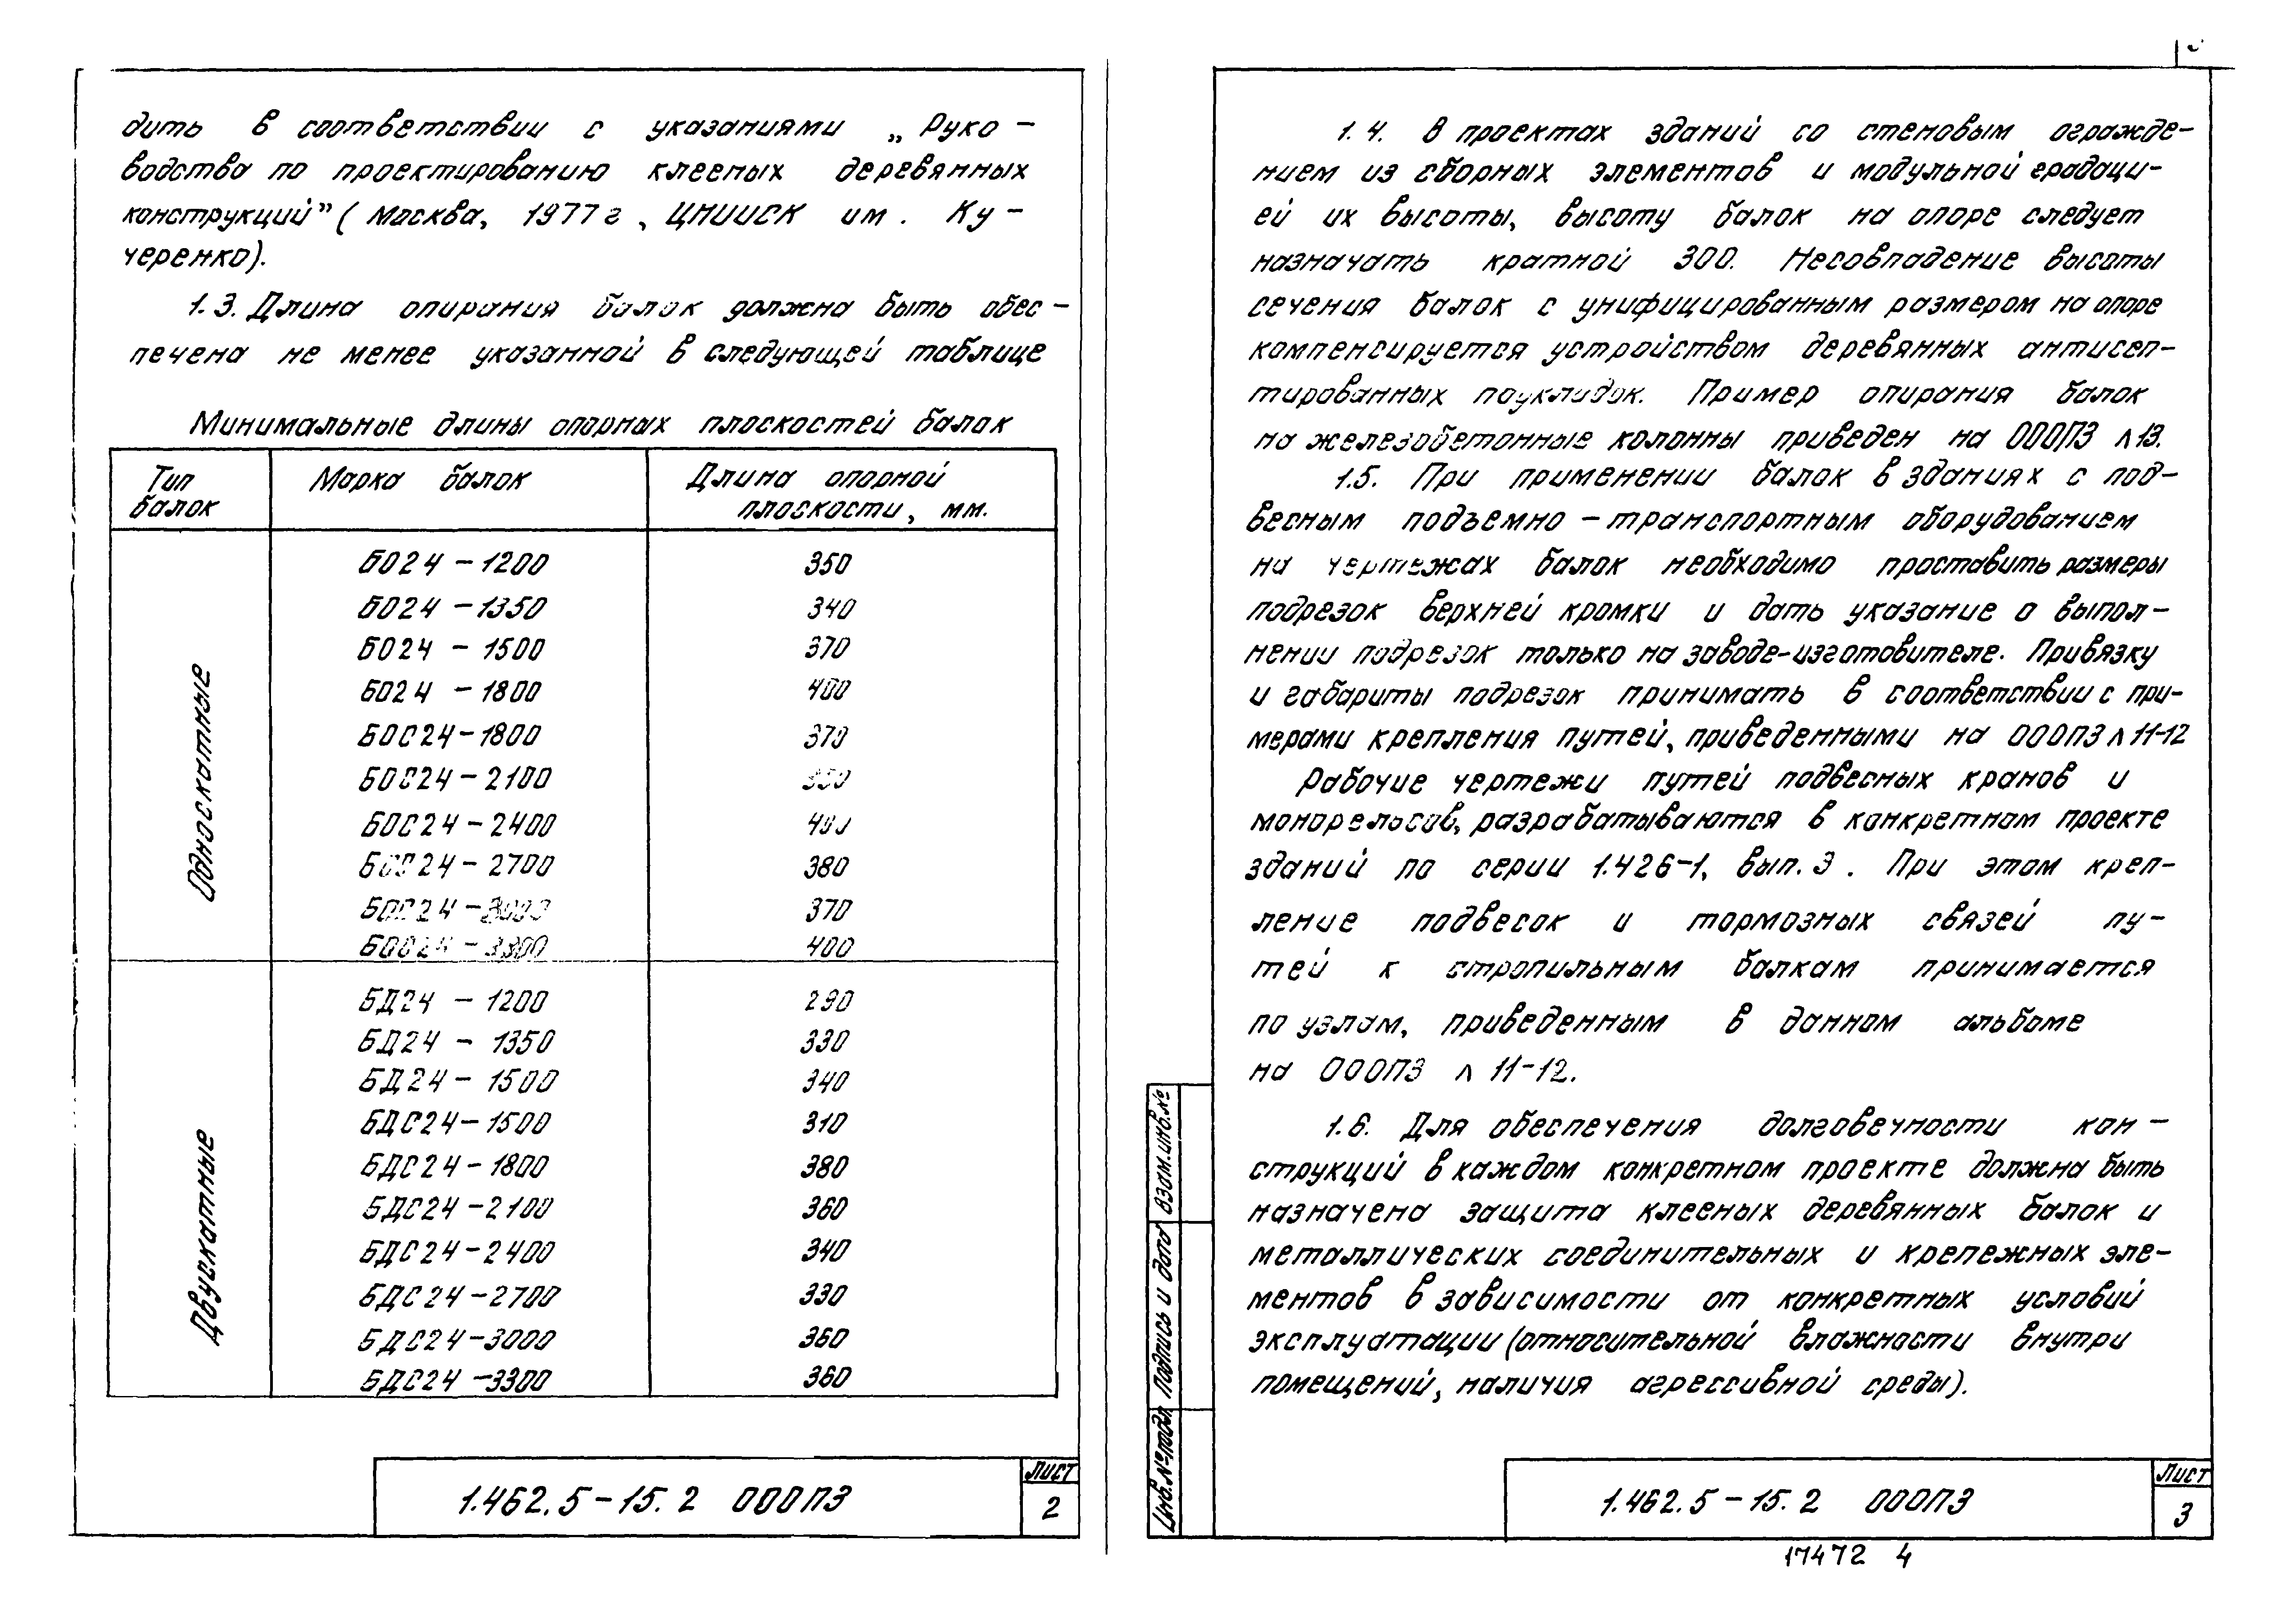 дить в соответствии с указаниями „Руко-
водства по проектированию клееных деревянных
конструкций" (Москва, 1977г, ЦНИИСК им. Ку-
черенко).
1.3. Длина опирания балок должна быть обес-
печена не менее указанной в следующей таблице
Минимальные длины опорных плоскостей балок
Тип балок Марка балок Длина опорной плоскости, мм.
Односкатные
БО24-1200 350
БО24-1350 340
БО24-1500 370
БО24-1800 400
БОС24-1800 370
БОС24-2100
БОС24-2400
БОС24-2700 380
БОС24-3000 370
БОС24-3300 400
Двускатные
БД24-1200 290
БД24-1350 330
БД24-1500 340
БДС24-1500 310
БДС24-1800 380
БДС24-2100 360
БДС24-2400 340
БДС24-2700 330
БДС24-3000 360
БДС24-3300 360
1.462.5-15.2 000ПЗ
Лист
2
1.4. В проектах зданий со стеновым огражде-
нием из сборных элементов и модульной градаци-
ей их высоты, высоту балок на опоре следует
назначать кратной 300. Несовпадение высоты
сечения балок с унифицированным размером на опоре
компенсируется устройством деревянных антисеп-
тированных подкладок. Пример опирания балок
на железобетонные колонны приведен на 000ПЗ л 13.
1.5. При применении балок в зданиях с под-
весным подъемно-транспортным оборудованием
на чертежах балок необходимо проставить размеры
подрезок верхней кромки и дать указание о выпол-
нении подрезок только на заводе-изготовителе. Привязку
и габариты подрезок принимать в соответствии с при-
мерами крепления путей, приведенными на 000ПЗ л 11-12
Рабочие чертежи путей подвесных кранов и
монорельсов, разрабатываются в конкретном проекте
зданий по серии 1.426-1, вып. 3. При этом креп-
ление подвесок и тормозных связей пу-
тей к стропильным балкам принимается
по узлам, приведенным в данном альбоме
на 000ПЗ л 11-12.
1.6. Для обеспечения долговечности кон-
струкций в каждом конкретном проекте должна быть
назначена защита клееных деревянных балок и
металлических соединительных и крепежных эле-
ментов в зависимости от конкретных условий
эксплуатации (относительной влажности внутри
помещений, наличия агрессивной среды).
Взам.инв.№
Подпись и дата
Инв.№подл
1.462.5-15.2 000ПЗ
Лист
3
17472 4